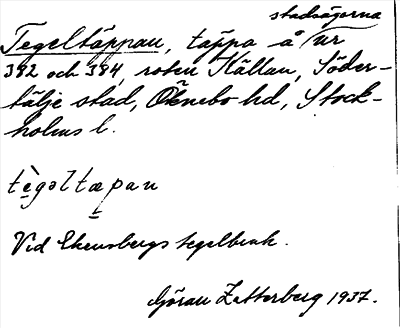 stadsägorna
Tegeltäppan, täppa å nr
392 och 384, roten Källan, Söder-
tälje stad, Öknebo hd, Stock-
holms l.
tègəltæpan
Vid Ekensbergs tegelbruk.
Göran Zetterberg 1937.